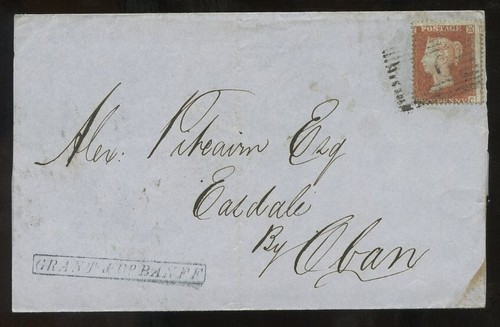 POSTAGE
Alex: Pitcairn Esq
Easdale
By
Oban
GRANT & Co BANFF